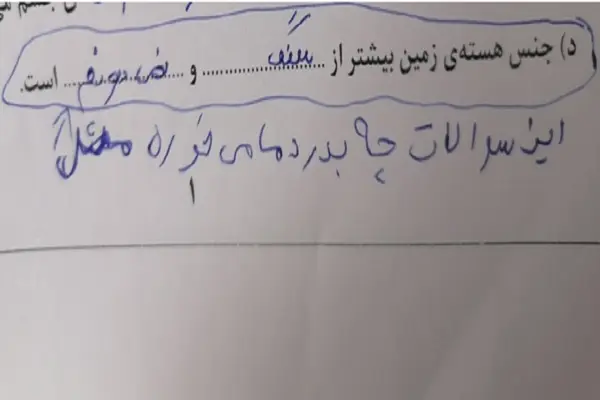 د) جنس هسته‌ی زمین بیشتر از ....سنگ.... و .............. است.
این سوالات چه بدرد ما می خوره مثلا